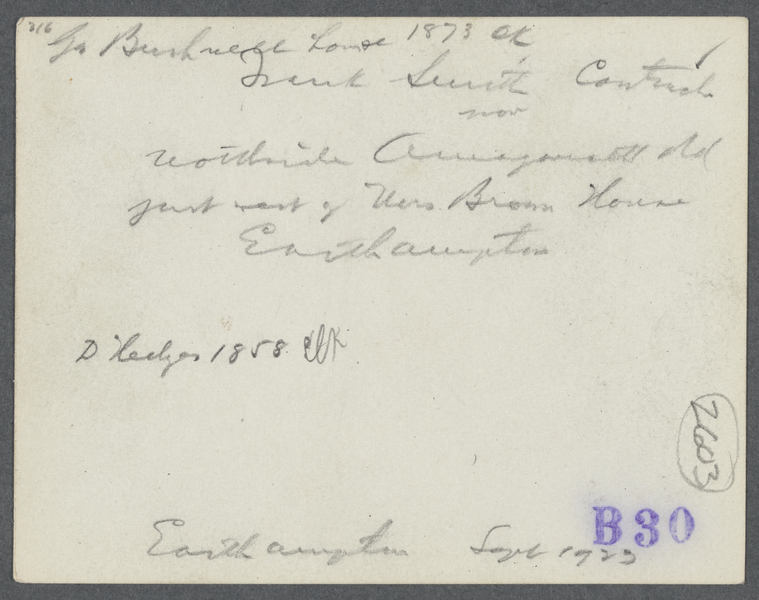 316
Bushnell house 1873 OK
Frank Smith
now
northside Amagansett Rd
just west of Mrs Brown House
Easthampton
D Hedges 1858
2603
B30
Easthampton Sept 1923